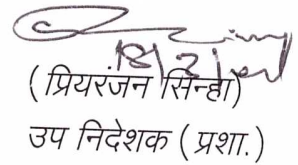 ( प्रियरंजन सिन्हा)
उप निदेशक ( प्रशा.)